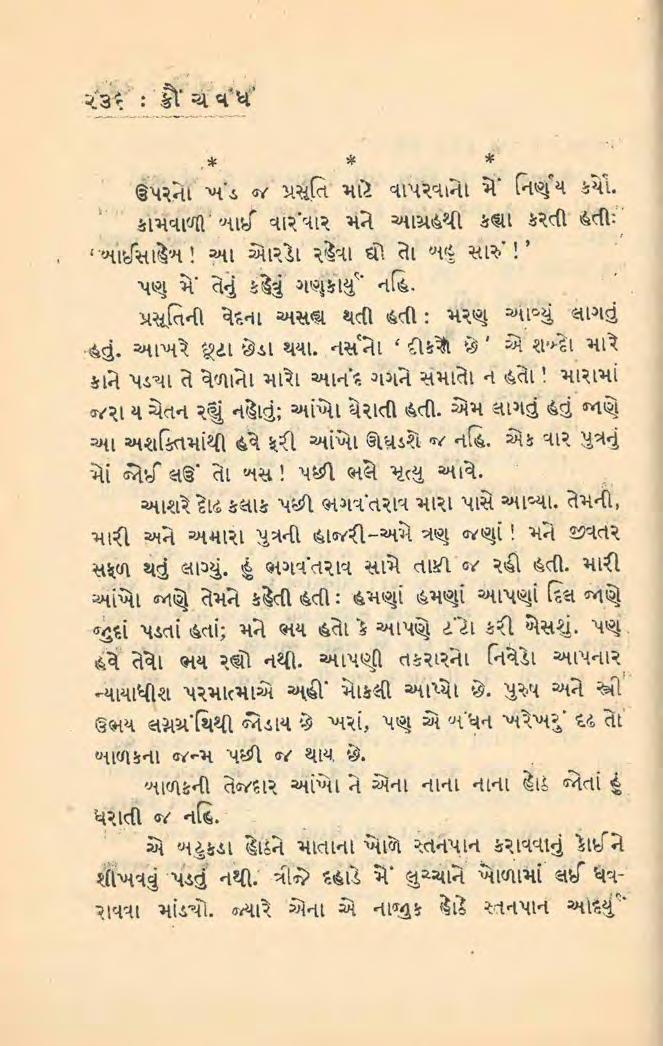 ૨૩૬ : ક્રૌંચવધ
* * *
ઉપરનો ખંડ જ પ્રસૂતિ માટે વાપરવાનો મેં નિર્ણય કર્યો.
કામવાળી બાઈ વારંવાર મને આગ્રહથી કહ્યા કરતી હતીઃ
‘બાઈસાહેબ! આ ઓરડો રહેવા દ્યો તો બહુ સારું!’
પણ મેં તેનું કહેવું ગણકાર્યું નહિ.
પ્રસૂતિની વેદના અસહ્ય થતી હતી : મરણ આવ્યું લાગતું
હતું. આખરે છૂટા છેડા થયા. નર્સનો ‘ દીકરો છે’ એ શબ્દો મારે
કાને પડ્યા તે વેળાનો મારો આનંદ ગગને સમાતો ન હતો! મારામાં
જરા ય ચેતન રહ્યું નહોતું; આંખો ઘેરાતી હતી. એમ લાગતું હતું જાણે
આ અશક્તિમાંથી હવે ફરી આંખો ઊઘડશે જ નહિ. એક વાર પુત્રનું
મોં જોઈ લઉં તો બસ! પછી ભલે મૃત્યુ આવે.
આશરે દોઢ કલાક પછી ભગવંતરાવ મારા પાસે આવ્યા. તેમની,
મારી અને અમારા પુત્રની હાજરી–અમે ત્રણ જણાં! મને જીવતર
સફળ થતું લાગ્યું. હું ભગવંતરાવ સામે તાકી જ રહી હતી. મારી
આંખો જાણે તેમને કહેતી હતી : હમણાં હમણાં આપણાં દિલ જાણે
જુદાં પડતાં હતાં; મને ભય હતો કે આપણે ટંટો કરી બેસશું. પણ
હવે તેવો ભય રહ્યો નથી. આપણી તકરારનો નિવેડો આપનાર
ન્યાયાધીશ પરમાત્માએ અહીં મોકલી આપ્યો છે. પુરુષ અને સ્ત્રી
ઉભય લગ્નગ્રંથિથી જોડાય છે ખરાં, પણ એ બંધન ખરેખરું દૃઢ તો
બાળકના જન્મ પછી જ થાય છે.
બાળકની તેજદાર આંખો ને એના નાના નાના હોઠ જોતાં હું
ધરાતી જ નહિ.
એ બટુકડા હોઠને માતાના ખોળે સ્તનપાન કરાવવાનું કોઈને
શીખવવું પડતું નથી. ત્રીજે દહાડે મેં લુચ્ચાને ખોળામાં લઈ ધવ-
રાવવા માંડ્યો. જ્યારે એના એ નાજુક હોઠે સ્તનપાન આદર્યું